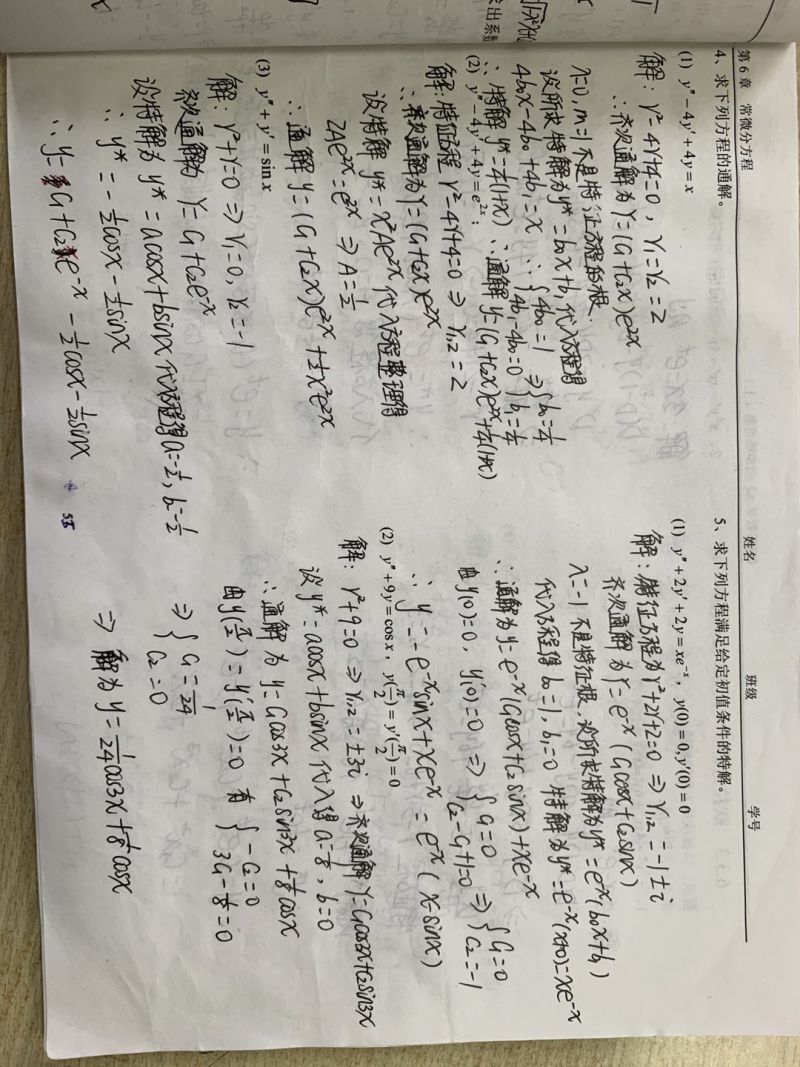 第 6 章 常微分方程
姓名 班级 学号
4、求下列方程的通解。
(1) y″−4y′+4y=x
解: r²-4r+4=0, r₁=r₂=2
∴齐次通解为Y=(C₁+C₂x)e^{2x}
λ=0, m=1 不是特征方程的根.
设所求特解为y*=b₀x+b₁ 代入方程得
4b₀x-4b₀+4b₁=x ∴ {4b₀=1 4b₁-4b₀=0 ⇒ {b₀=1/4 b₁=1/4
∴特解y*=1/4(1+x) ∴通解y=(C₁+C₂x)e^{2x}+1/4(1+x)
(2) y″−4y′+4y=e^{2x};
解: 特征方程 r²-4r+4=0 ⇒ r₁,₂=2
∴齐次通解为Y=(C₁+C₂x)e^{2x}
设特解 y*=x²Ae^{2x} 代入方程整理得
2Ae^{2x}=e^{2x} ⇒ A=1/2
∴通解 y=(C₁+C₂x)e^{2x}+1/2x²e^{2x}
(3) y″+y′=sin x
解: r²+r=0 ⇒ r₁=0, r₂=-1
齐次通解为 Y=C₁+C₂e^{-x}
设特解为 y*=acosx+bsinx 代入方程得a=-1/2, b=-1/2
∴ y*=-1/2cosx-1/2sinx
∴ y=C₁+C₂e^{-x}-1/2cosx-1/2sinx
5、求下列方程满足给定初值条件的特解。
(1) y″+2y′+2y=xe^{−x}, y(0)=0, y′(0)=0
解: 特征方程为r²+2r+2=0 ⇒ r₁,₂=-1±i
齐次通解为Y=e^{-x}(C₁cosx+C₂sinx)
λ=-1 不是特征根, 设所求特解为y*=e^{-x}(b₀x+b₁)
代入方程得 b₀=1, b₁=0 特解为y*=e^{-x}(x+0)=xe^{-x}
∴通解为y=e^{-x}(C₁cosx+C₂sinx)+xe^{-x}
由y(0)=0, y′(0)=0 ⇒ {C₁=0 C₂-C₁+1=0 ⇒ {C₁=0 C₂=-1
∴ y=-e^{-x}sinx+xe^{-x}=e^{-x}(x-sinx)
(2) y″+9y=cos x, y(π/2)=y′(π/2)=0
解: r²+9=0 ⇒ r₁,₂=±3i ⇒ 齐次通解Y=C₁cos3x+C₂sin3x
设 y*=acosx+bsinx 代入得 a=1/8, b=0
∴通解为 y=C₁cos3x+C₂sin3x+1/8cosx
由y(π/2)=y′(π/2)=0 有 {-C₂=0 3C₁-1/8=0
⇒ {C₁=1/24 C₂=0
⇒ 解为 y=1/24cos3x+1/8cosx